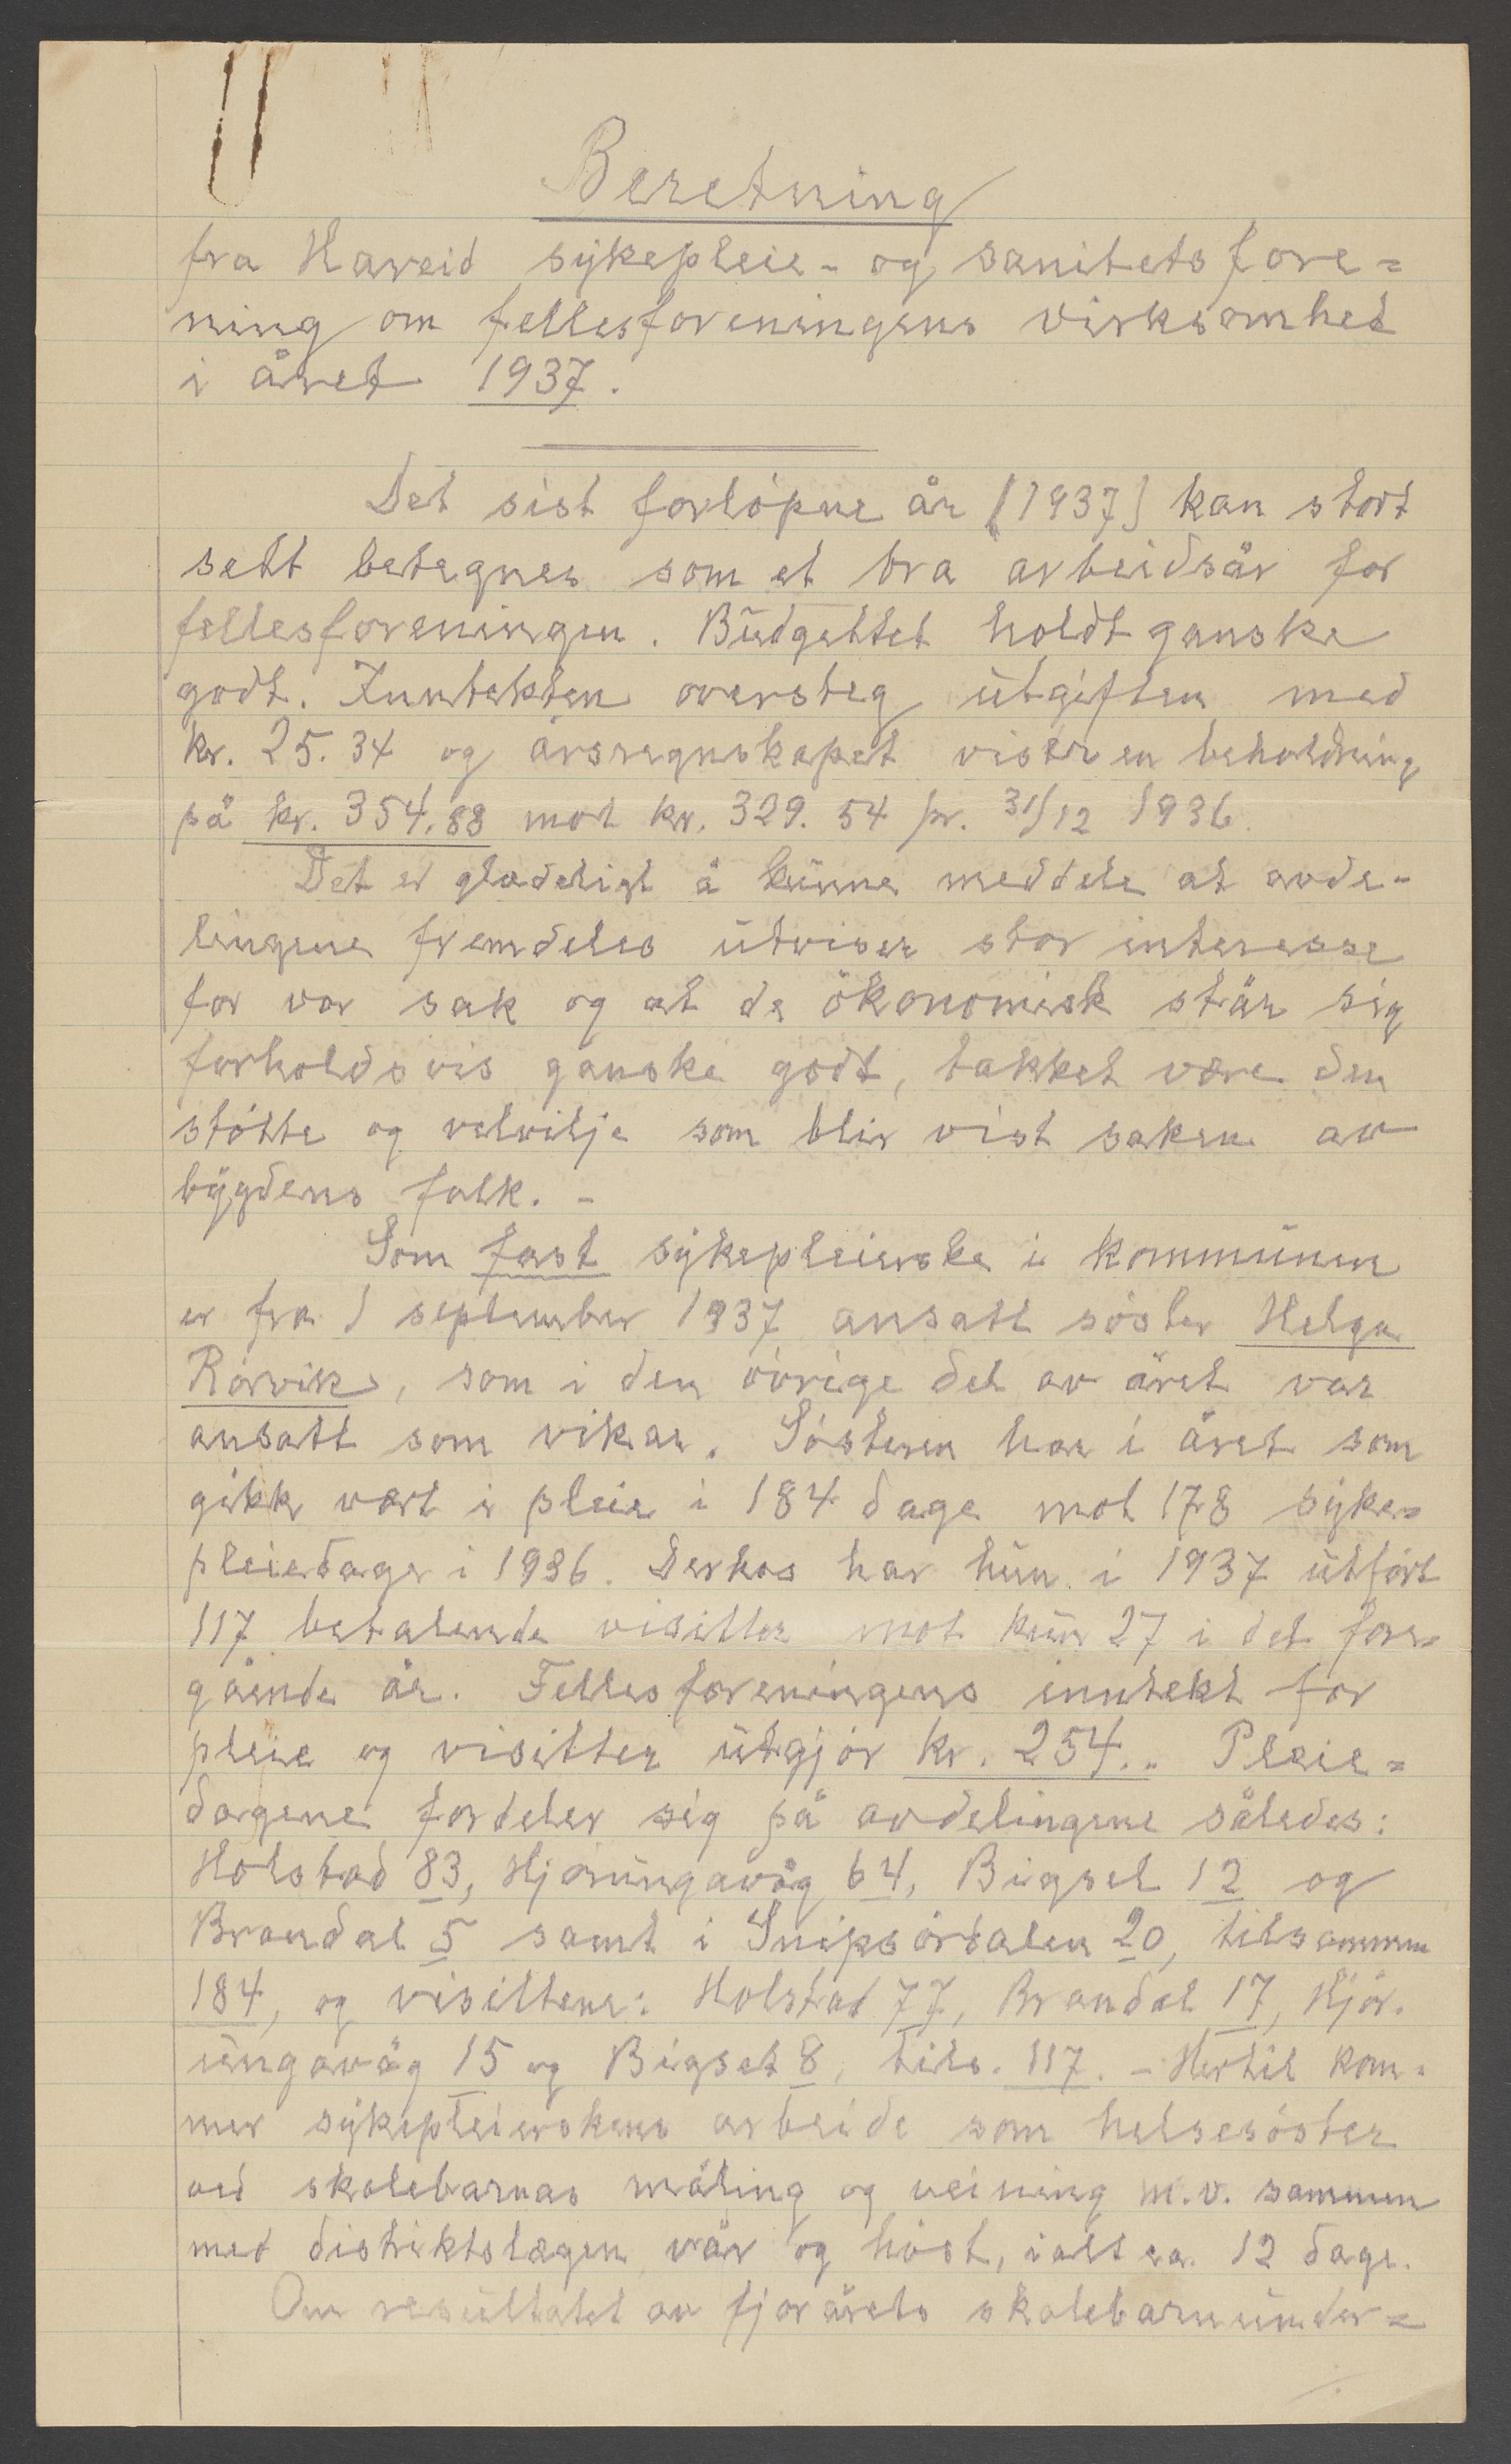 Beretning
fra Hareid sykepleie- og sanitetsfore=
ning om fellesforeningens virksomhet
i året 1937.
Det sist forløpne år (1937) kan stort
sett betegnes som et bra arbeidsår for
fellesforeningen. Budgettet holdt ganske
godt. Inntekten oversteg utgiften med
kr. 25.34 og årsregnskapet viser en beholdning
på kr. 354,88 mot kr. 329.54 pr. 31/12 1936.
Det er gledeligt å kunne meddele at avde-
lingene fremdeles utviser stor interesse
for vor sak og at de økonomisk står sig
forholdsvis ganske godt, takket være den
støtte og velvilje som blir vist saken av
bygdens folk. -
Som fast sykepleierske i kommunen
er fra 1 september 1937 ansatt søster Helga
Rørvik, som i den øvrige del av året var
ansatt som vikar. Søsteren har i året som
gikk vært i pleie i 184 dage mot 178 syke-
pleiedager i 1936. Derhos har hun i 1937 utført
117 betalende visitter mot kun 27 i det fore-
gående år. Fellesforeningens inntekt for
pleie og visitter utgjør kr. 254.- Pleie=
dagene fordeler sig på avdelingene således:
Holstad 83, Hjørungavåg 64, Bigset 12 og
Brandal 5 samt i Snipsørdalen 20, tilsammen
184, og visittene: Holstad 77, Brandal 17, Hjør-
ungavåg 15 og Bigset 8, tils. 117. - Hertil kom-
mer sykepleierskens arbeide som helsesøster
ved skolebarnas måling og veining m.v. sammen
med distriktslægen vår og høst, ialt ca. 12 dage.
Om resultatet av fjorårets skolebarnunder=